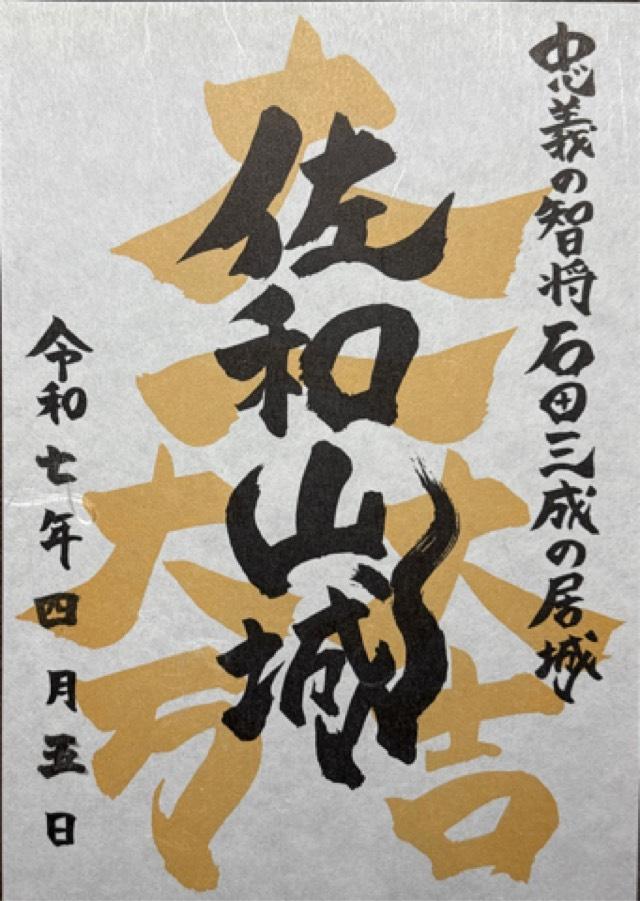 忠義の智将 石田三成の居城
佐和山城
大一大万大吉
令和七年四月五日